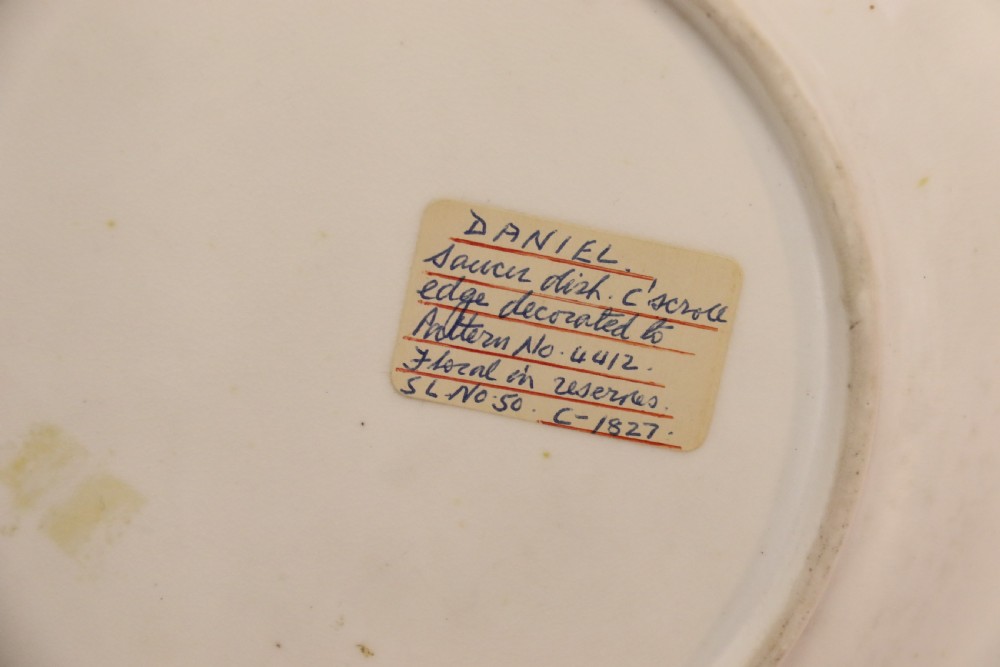 DANIEL.
Saucer dish. 'C' scroll
edge decorated to
Pattern No. 4412.
Floral in reserves.
SL.No.50. C-1827.